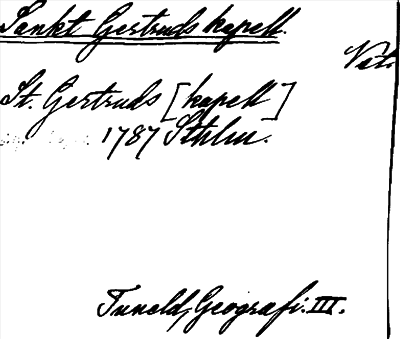 Sankt Gertruds kapell.
Vät.
St. Gertruds [kapell]
1787 Sthlm.
Tuneld, Geografi. III.